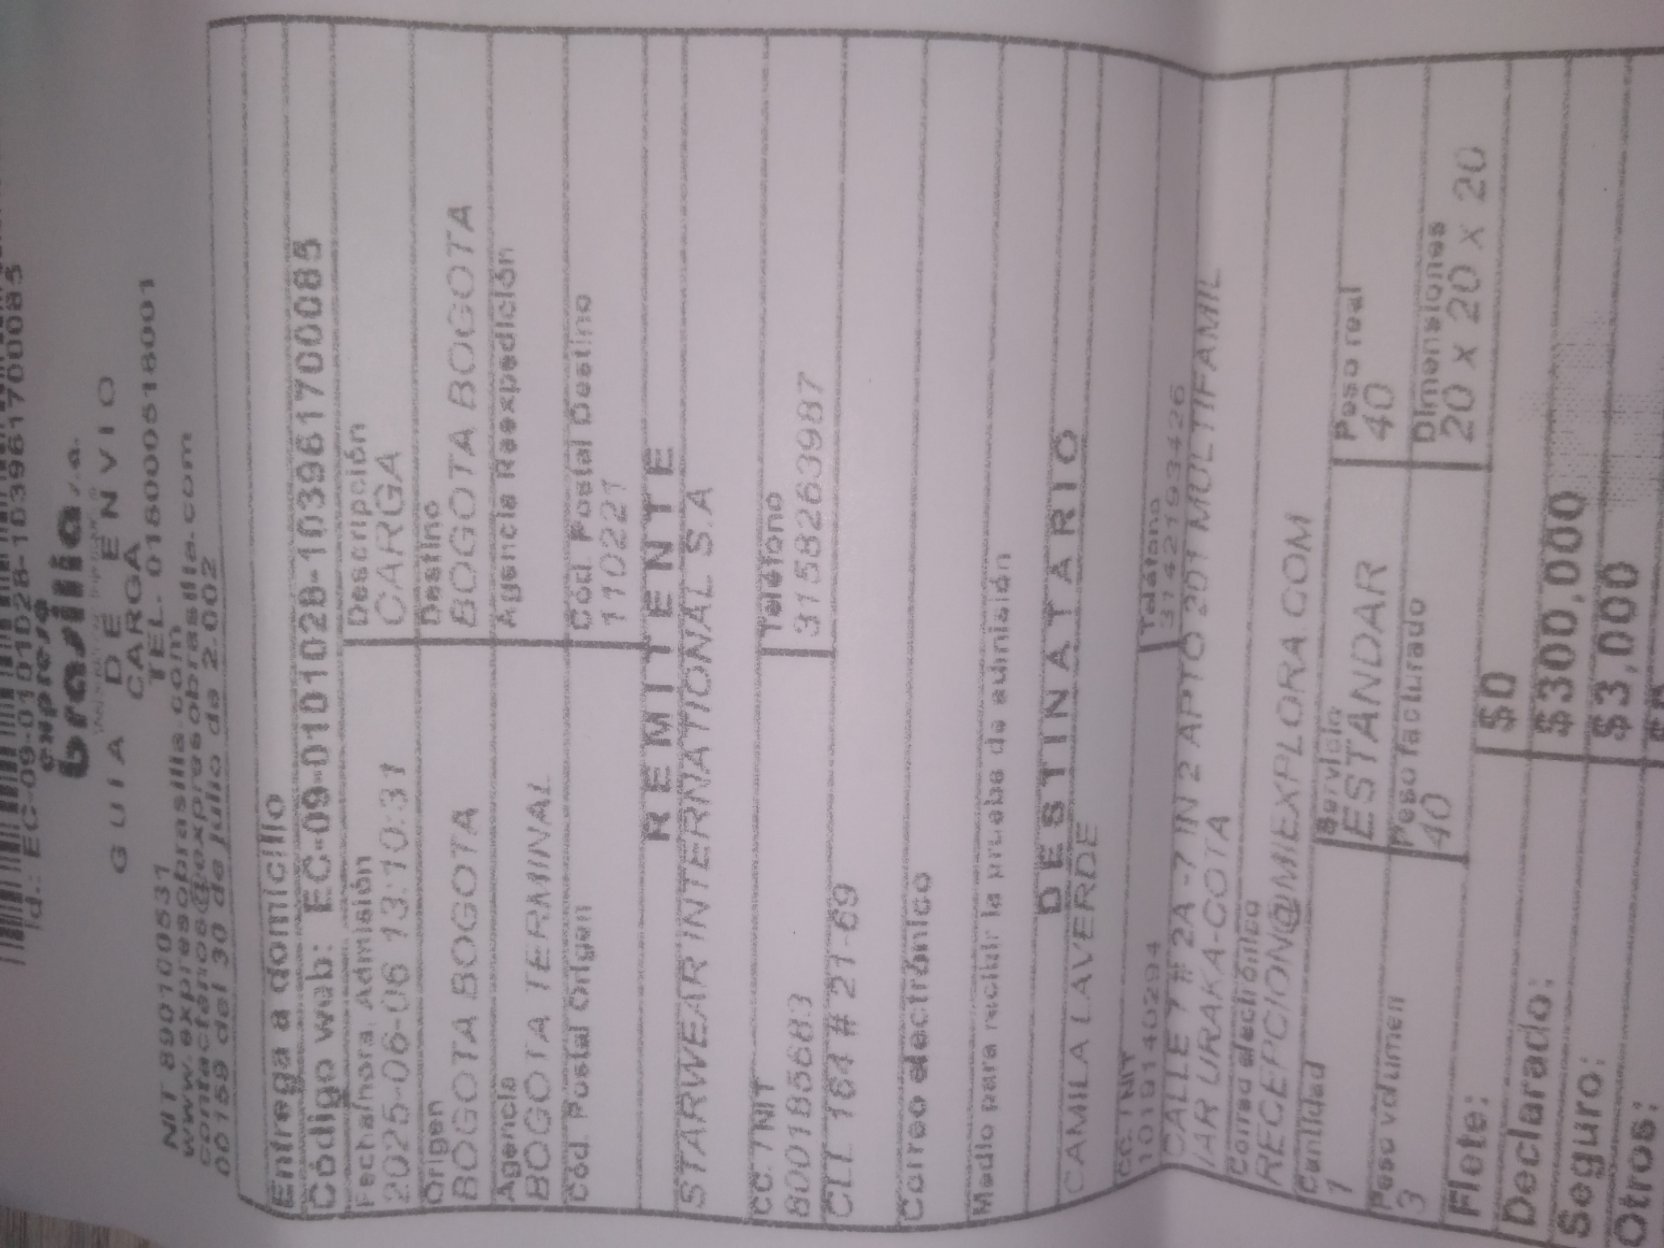 d.: EC-09-010102B-10396170085
expreso
brasilia s.a.
GUIA DE ENVIO
CARGA
NIT 890100531 TEL. 018000518001
www.expresobrasilia.com
contactenos@expresobrasilia.com
00159 del 30 de julio de 2.002
Entrega a domicilio
Código web: EC-09-010102B-10396170085
Fecha/hora Admisión Descripción
2025-06-06 13:10:31 CARGA
Origen Destino
BOGOTA BOGOTA BOGOTA BOGOTA
Agencia Agencia Reexpedición
BOGOTA TERMINAL
Cód. Postal Origen Cód. Postal Destino
110221
REMITENTE
STARWEAR INTERNATIONAL S.A
CC. / NIT Teléfono
800185683 3158263987
CLL 164 # 21-69
Correo electrónico
Medio para recibir la prueba de admisión
DESTINATARIO
CAMILA LAVERDE
CC. / NIT Teléfono
1019140294
CALLE 7 # 2A -7 IN 2 APTO 201 MULTIFAMIL
IAR URAKA-COTA
Correo electrónico
RECEPCION@MIEXPLORA.COM
Cantidad Servicio Peso real
1 ESTANDAR 40
Peso volumen Peso facturado Dimensiones
3 40 20 x 20 x 20
Flete: $0
Declarado: $300,000
Seguro: $3,000
Otros: $0